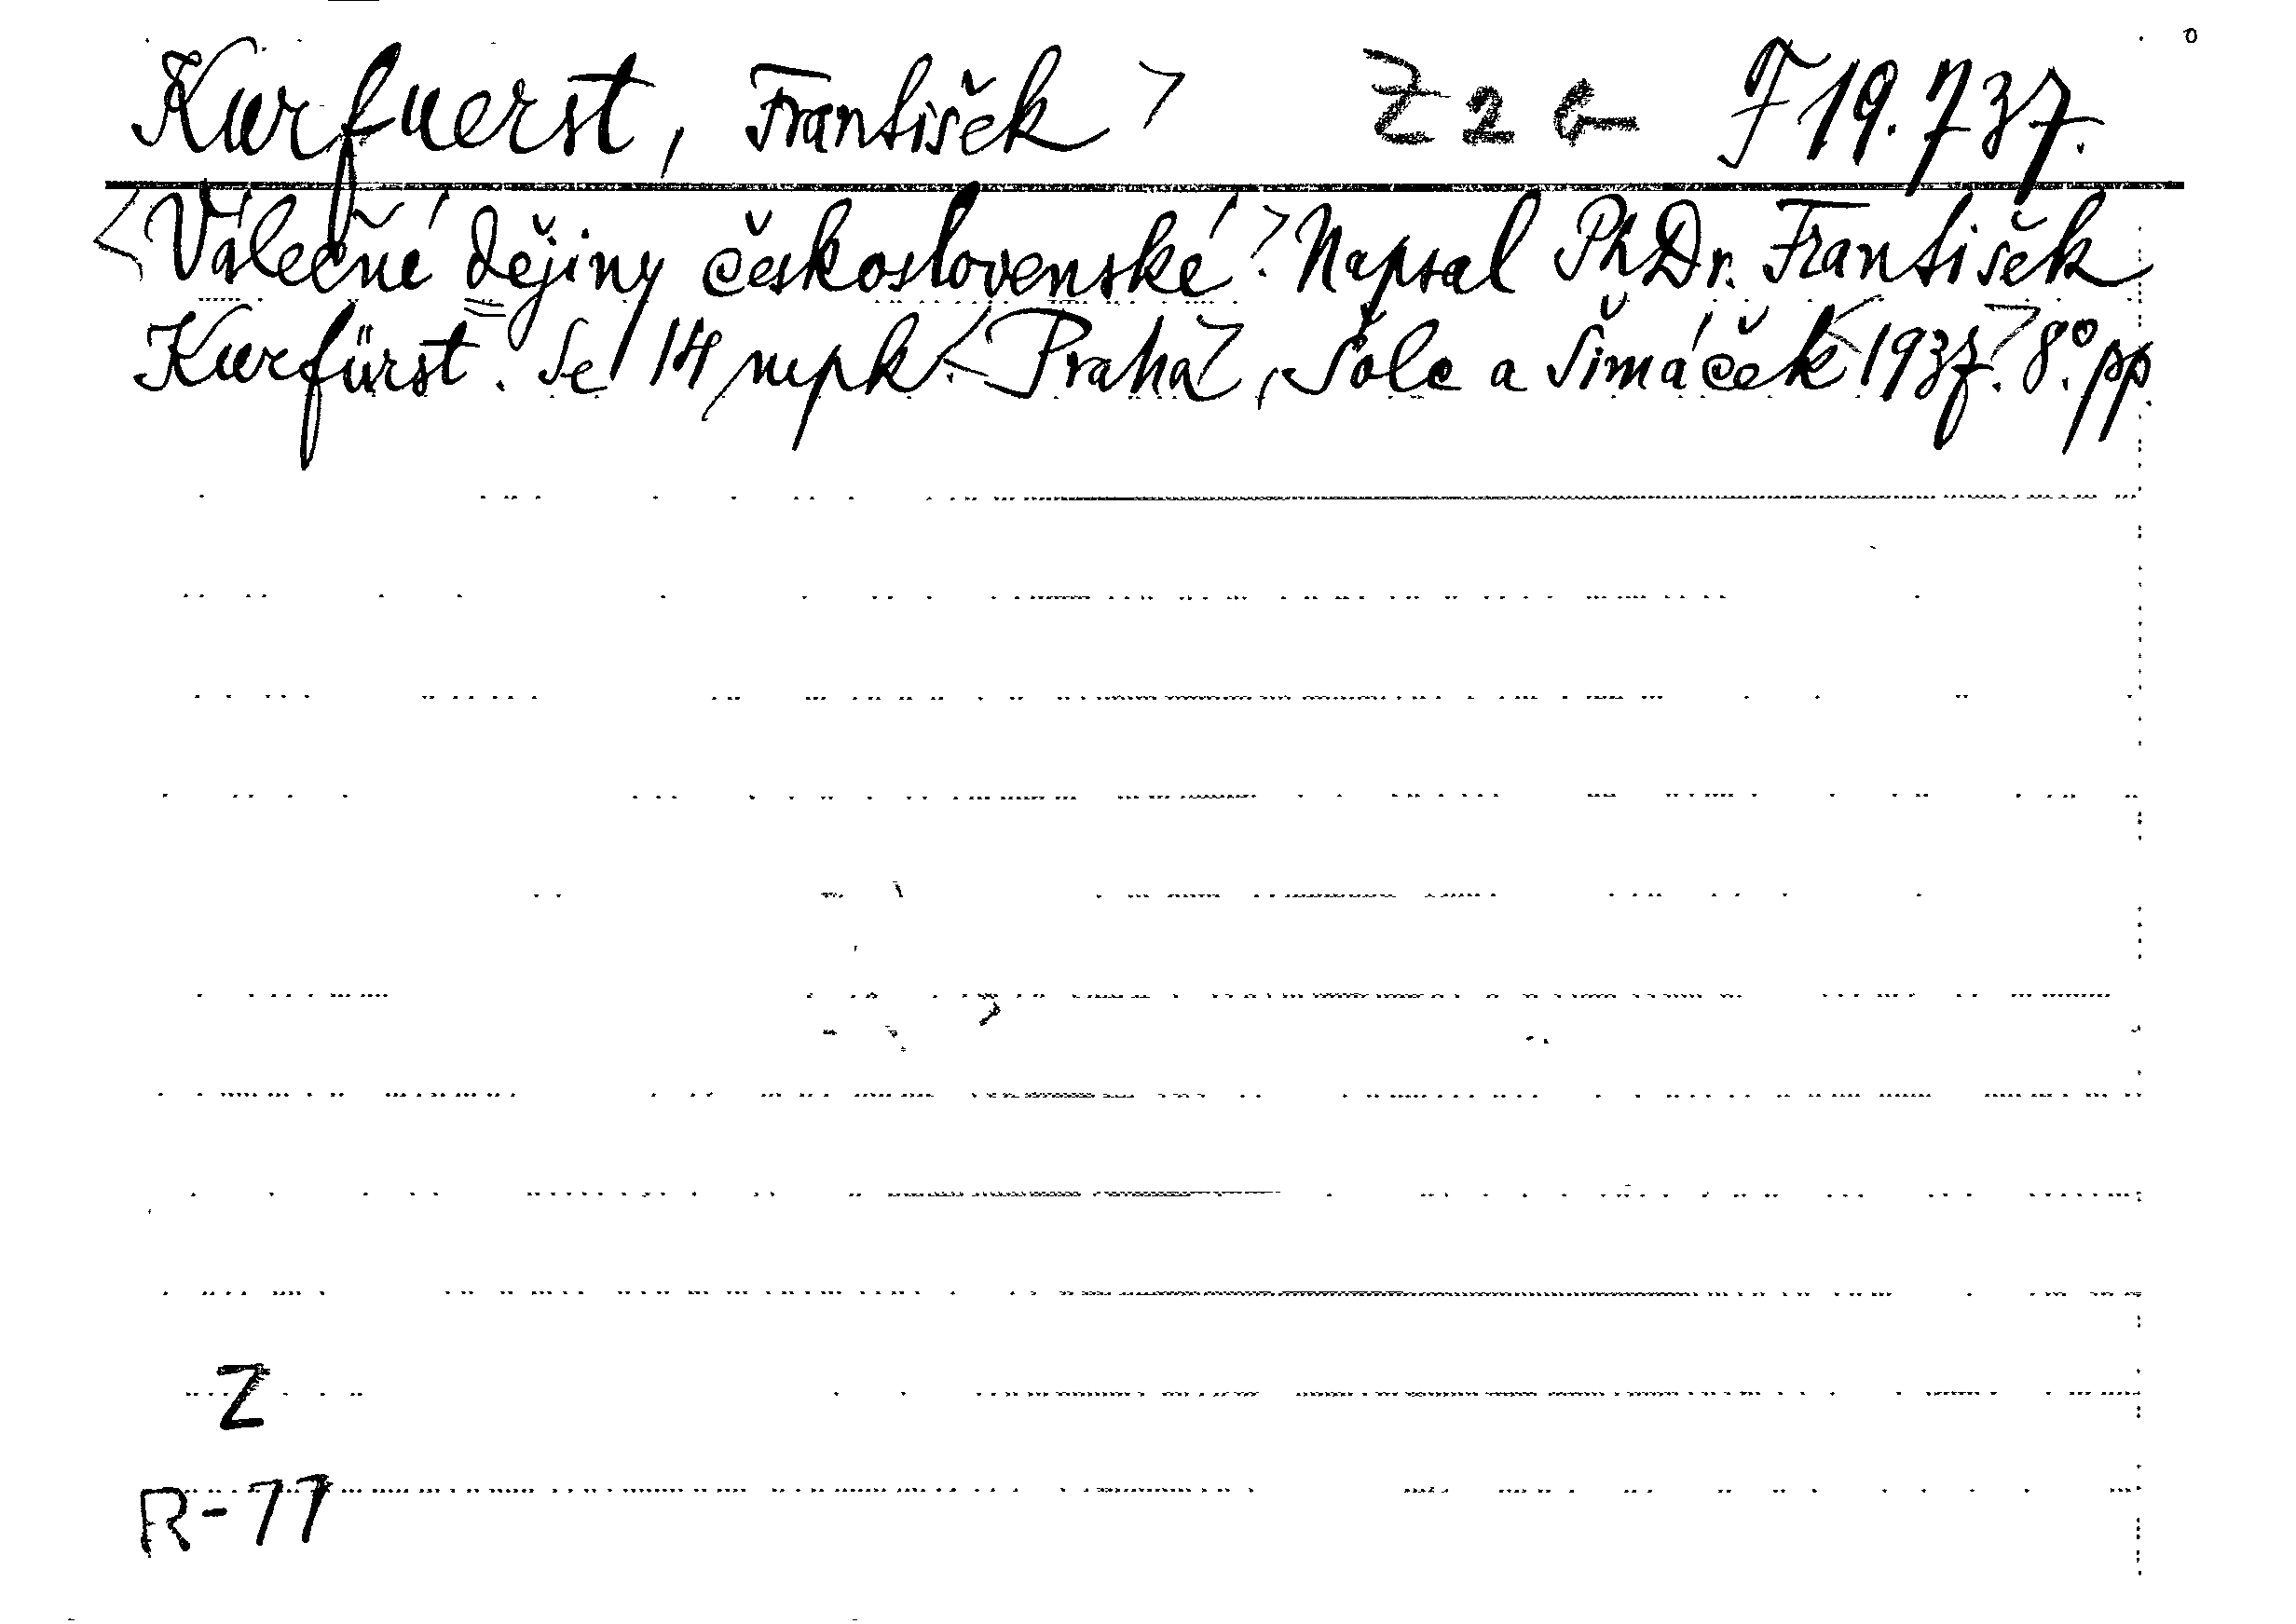 Kurfuerst, František > Z 2 b F 19.737.
<Válečné dějiny československé>. Napsal PhDr. František
Kurfürst. Se 14 mpk. <Praha>, Šolc a Šimáček <1937>. 8°. pp.
Z
R-77